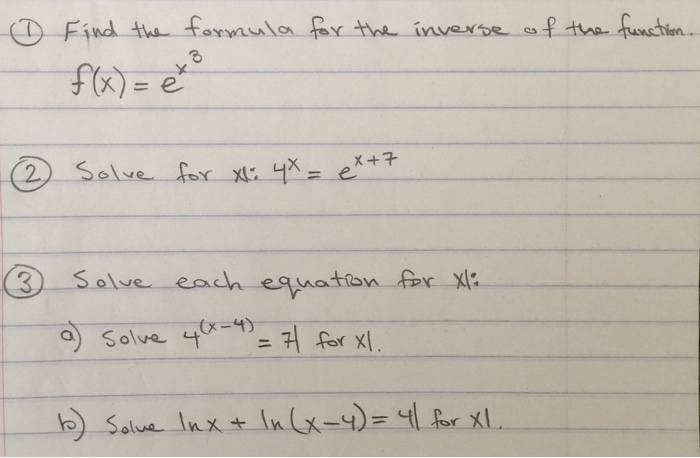 ① Find the formula for the inverse of the function.
f(x) = e^x^3
② Solve for x|: 4^x = e^x+7
③ Solve each equation for x|:
a) Solve 4^(x-4) = 7| for x|.
b) Solve ln x + ln(x-4) = 4| for x|.